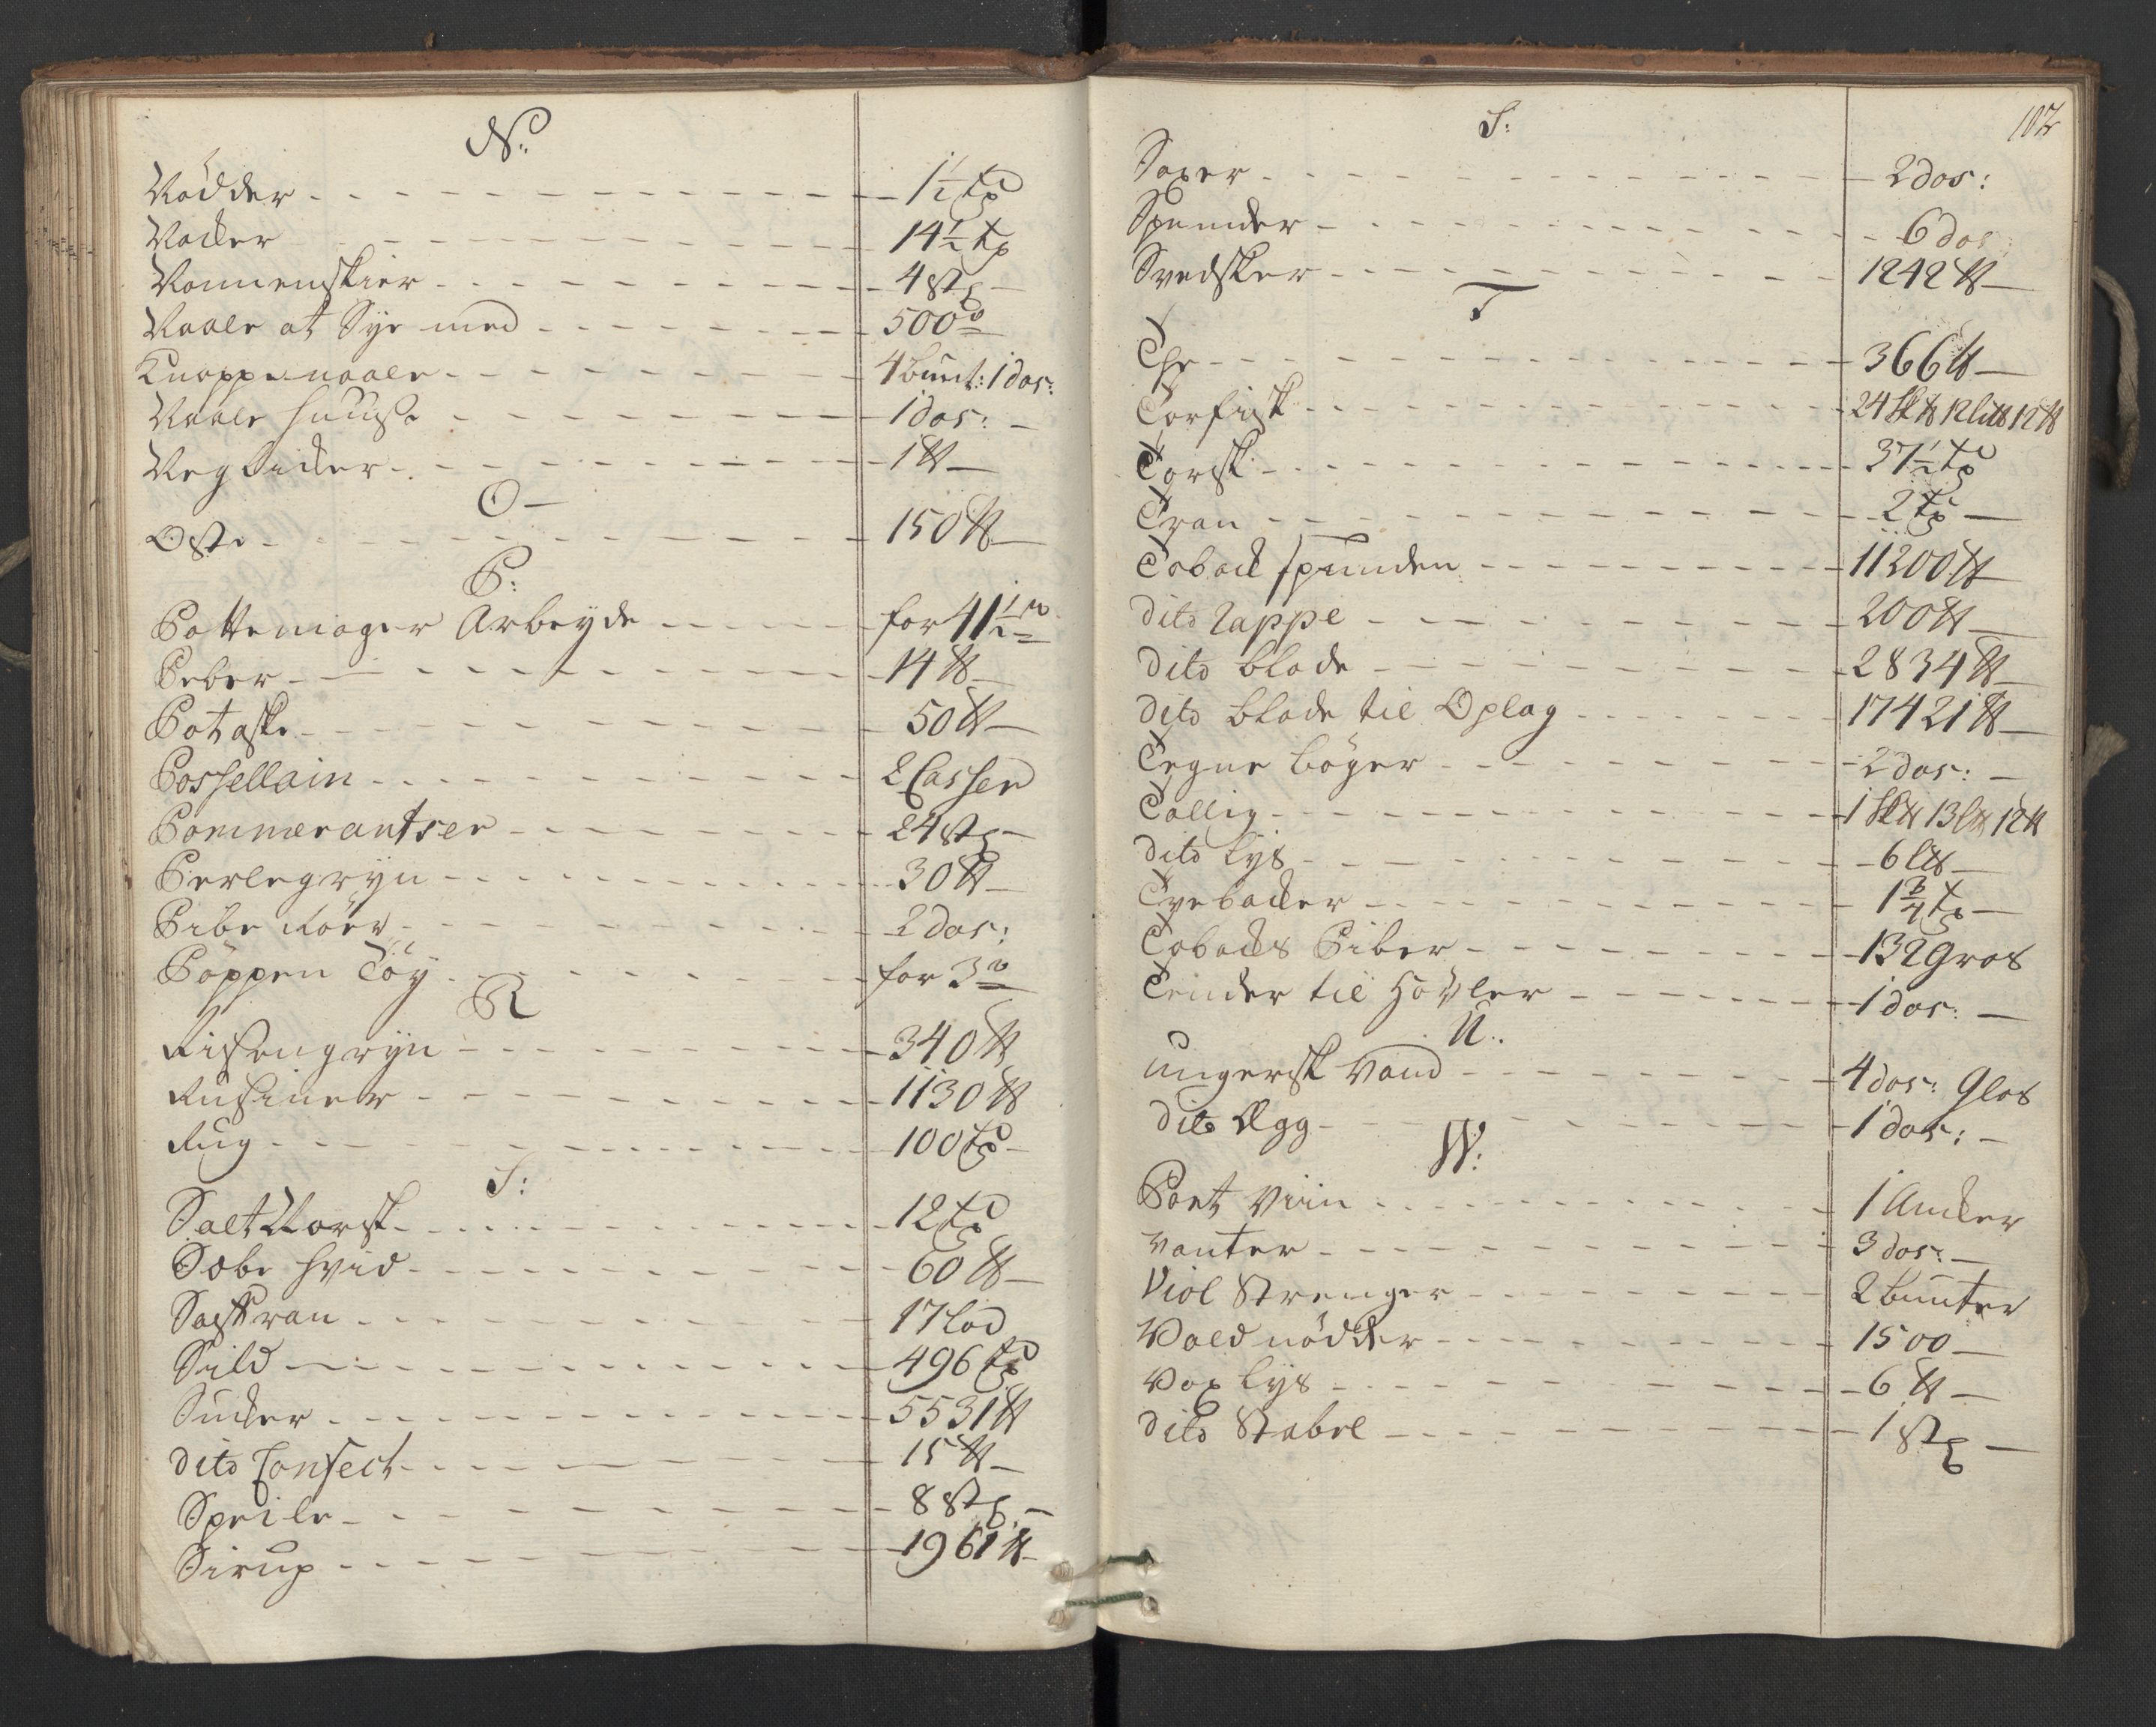 N:
Nødder 1½ td
Nacker 14½ td
Nonnenskier 4 stk
Naale at Sye med 500
Knappenaale 4 bunt: 1 dos:
Naale Huuse 1 dos:
Neglicker 1 ℔
O
Oste 150 ℔
P:
Pottemager Arbeyde for 41½
Peber 14 ℔
Potaske 50 ℔
Possellain 2 Casser
Pommerantser 24 stk
Perlegryn 30 ℔
Pibe Röer 2 dos:
Poppen Töy for 3
R
Rissengryn 340 ℔
Rusiner 1130 ℔
Rug 100 td
S:
Salt Torsk 12 td
Sæbe hvid 60 ℔
Saffran 17 lod
Sild 496 td
Sucker 5531 ℔
dito Confect 15 ℔
Speile 8 stk
Sirup 1961 ℔
102
S:
Saxer 2 dos:
Spender 6 dos
Svedsker 1242 ℔
T
The 366 ℔
Torfisk 24 sk℔ 12 li℔ 12 ℔
Torsk 37½ td
Tran 2 td
Toback spunden 11200 ℔
dito Rappe 200 ℔
dito blade 2834 ℔
dito blade til Oplag 17421 ℔
Tegne bøger 2 dos:
Tallig 1 sk℔ 13 l℔ 12 ℔
dito lys 6 l℔
Tvebacker 1¾ td
Tobacks Piber 132 gros
Tender til Høvler 1 dos:
U:
ungersk Vand 4 dos: Glas
dito Ægg 1 dos:
W:
Port Viin 1 Ancker
Vanter 3 dos:
Viol Strenger 2 bunter
Valdnødder 1500
Vox lys 6 ℔
dito Stabel 1 stk